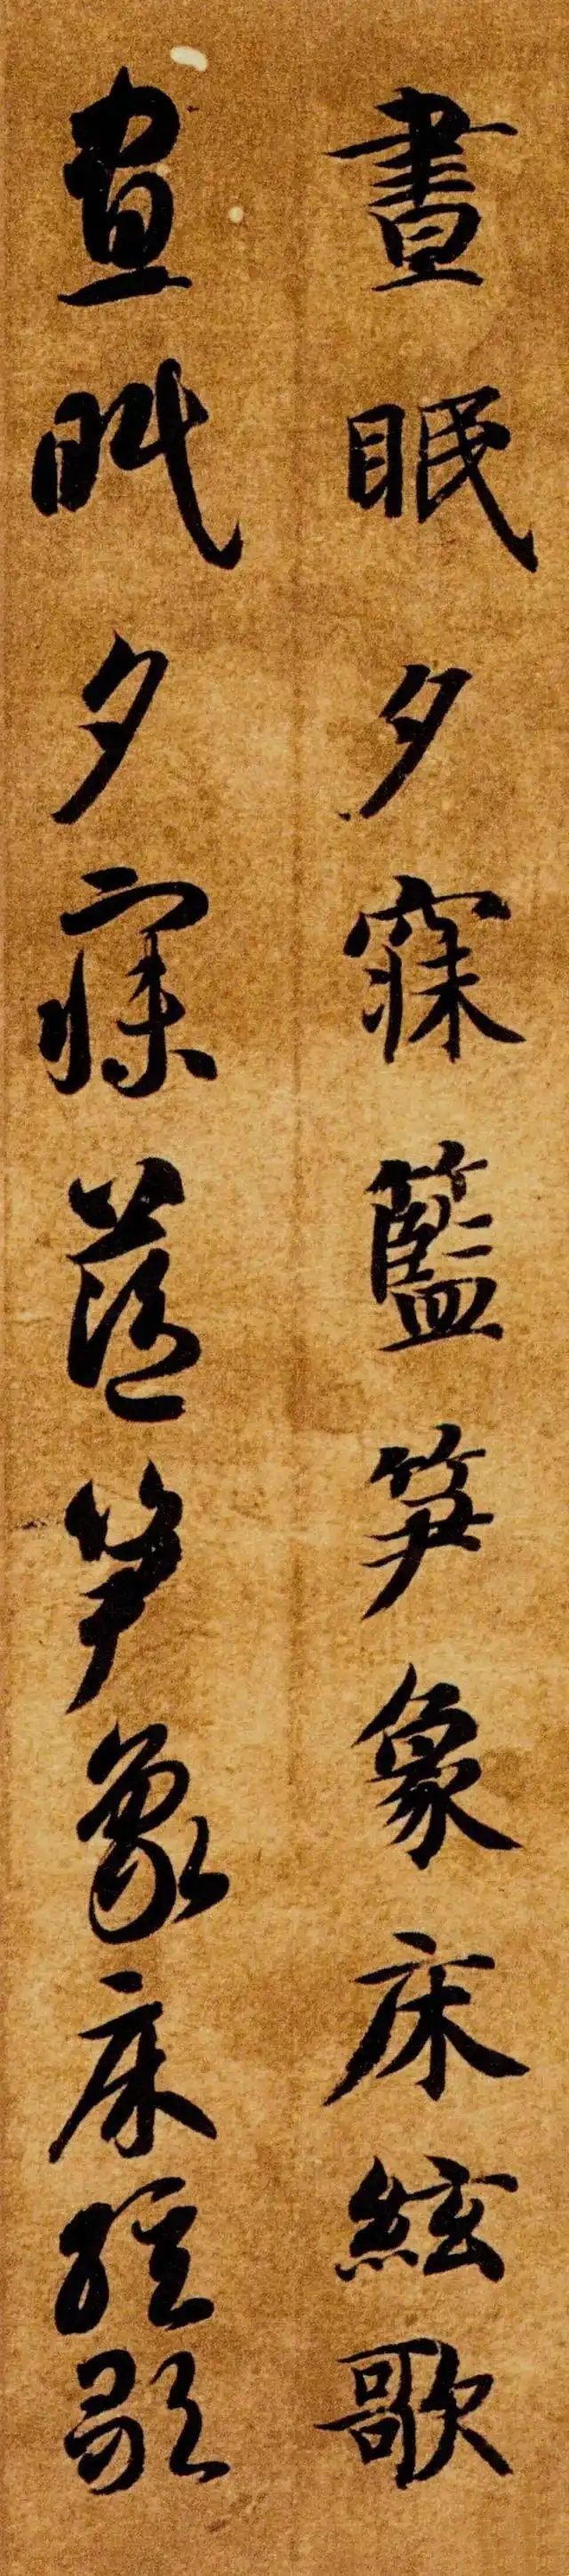 晝眠夕寐籃笋象床絃歌
晝眠夕寐藍笋象床絃歌